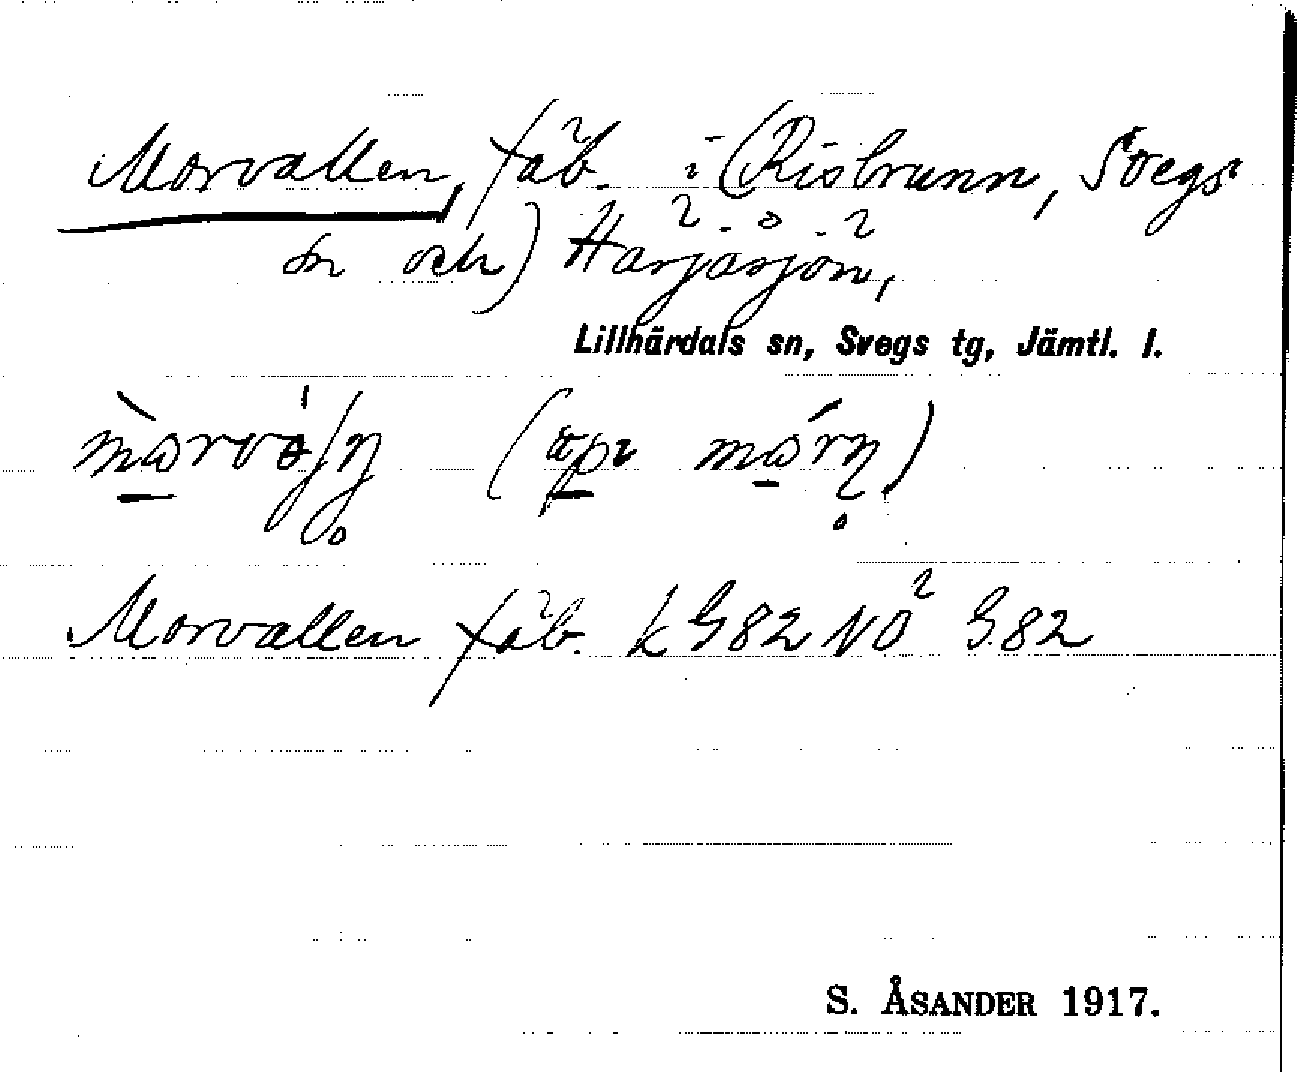 Morvallen, fäb. i (Risbrunn, Svegs
sn och) Härjåsjön,
Lillhärdals sn, Svegs tg, Jämtl. l.
(
Morvallen fäb. k G82 NO² G.82
S. ÅSANDER 1917.